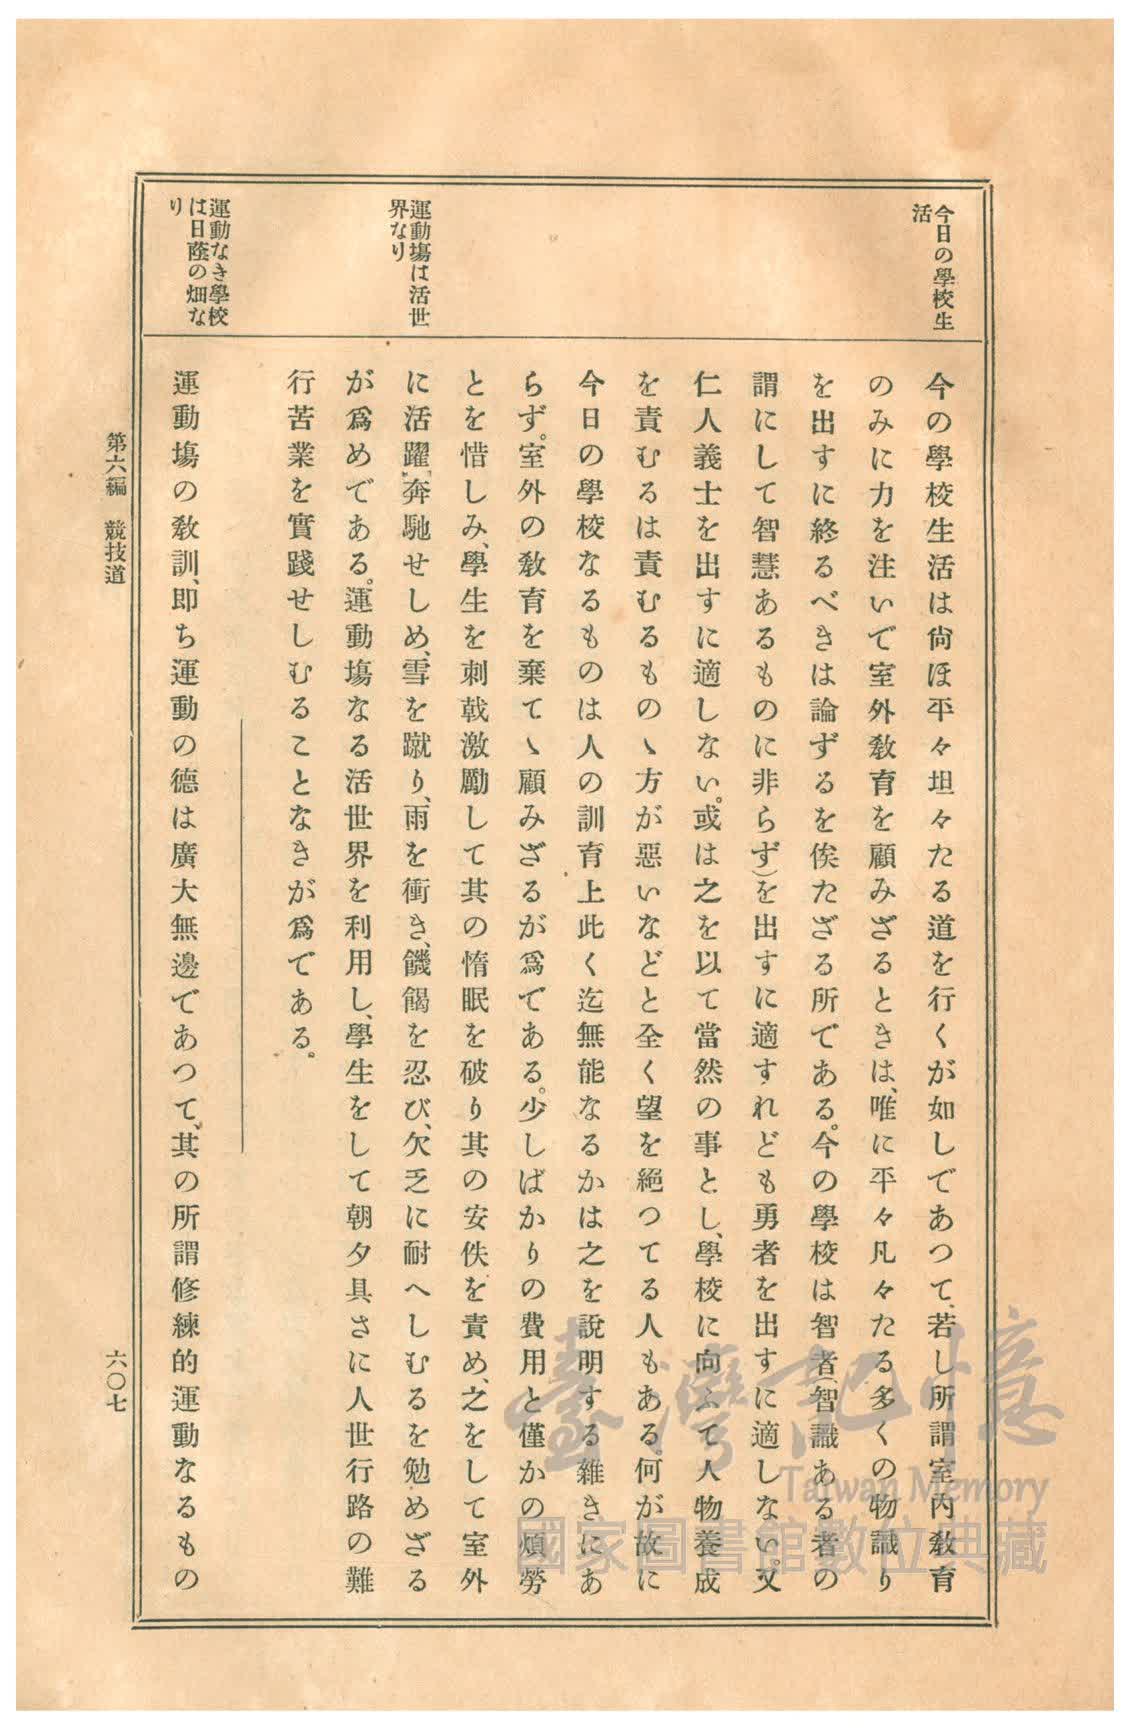 今日の學校生
活
運動塲は活世
界なり
運動なき學校
は日蔭の畑な
り
今の學校生活は尙ほ平々坦々たる道を行くが如しであつて、若し所謂室内敎育
のみに力を注いで室外敎育を顧みざるときは、唯に平々凡々たる多くの物識り
を出すに終るべきは論ずるを俟たざる所である。今の學校は智者(智識ある者の
謂にして智慧あるものに非らず)を出すに適すれども勇者を出すに適しない。又
仁人義士を出すに適しない。或は之を以て當然の事とし、學校に向ふて人物養成
を責むるは責むるものゝ方が惡いなどと全く望を絕つてる人もある。何が故に
今日の學校なるものは人の訓育上此く迄無能なるかは之を說明する雜きにあ
らず。室外の敎育を棄てゝ顧みざるが爲である。少しばかりの費用と僅かの煩勞
とを惜しみ、學生を刺戟激勵して其の惰眠を破り其の安佚を責め、之をして室外
に活躍奔馳せしめ、雪を蹴り、雨を衝き、饑餲を忍び、欠乏に耐へしむるを勉めざる
が爲めである。運動塲なる活世界を利用し、學生をして朝夕具さに人世行路の難
行苦業を實踐せしむることなきが爲である。
運動塲の敎訓、卽ち運動の德は廣大無邊であつて、其の所謂修練的運動なるもの
第六編 競技道
六〇七
臺灣記憶
Taiwan Memory
國家圖書館數位典藏